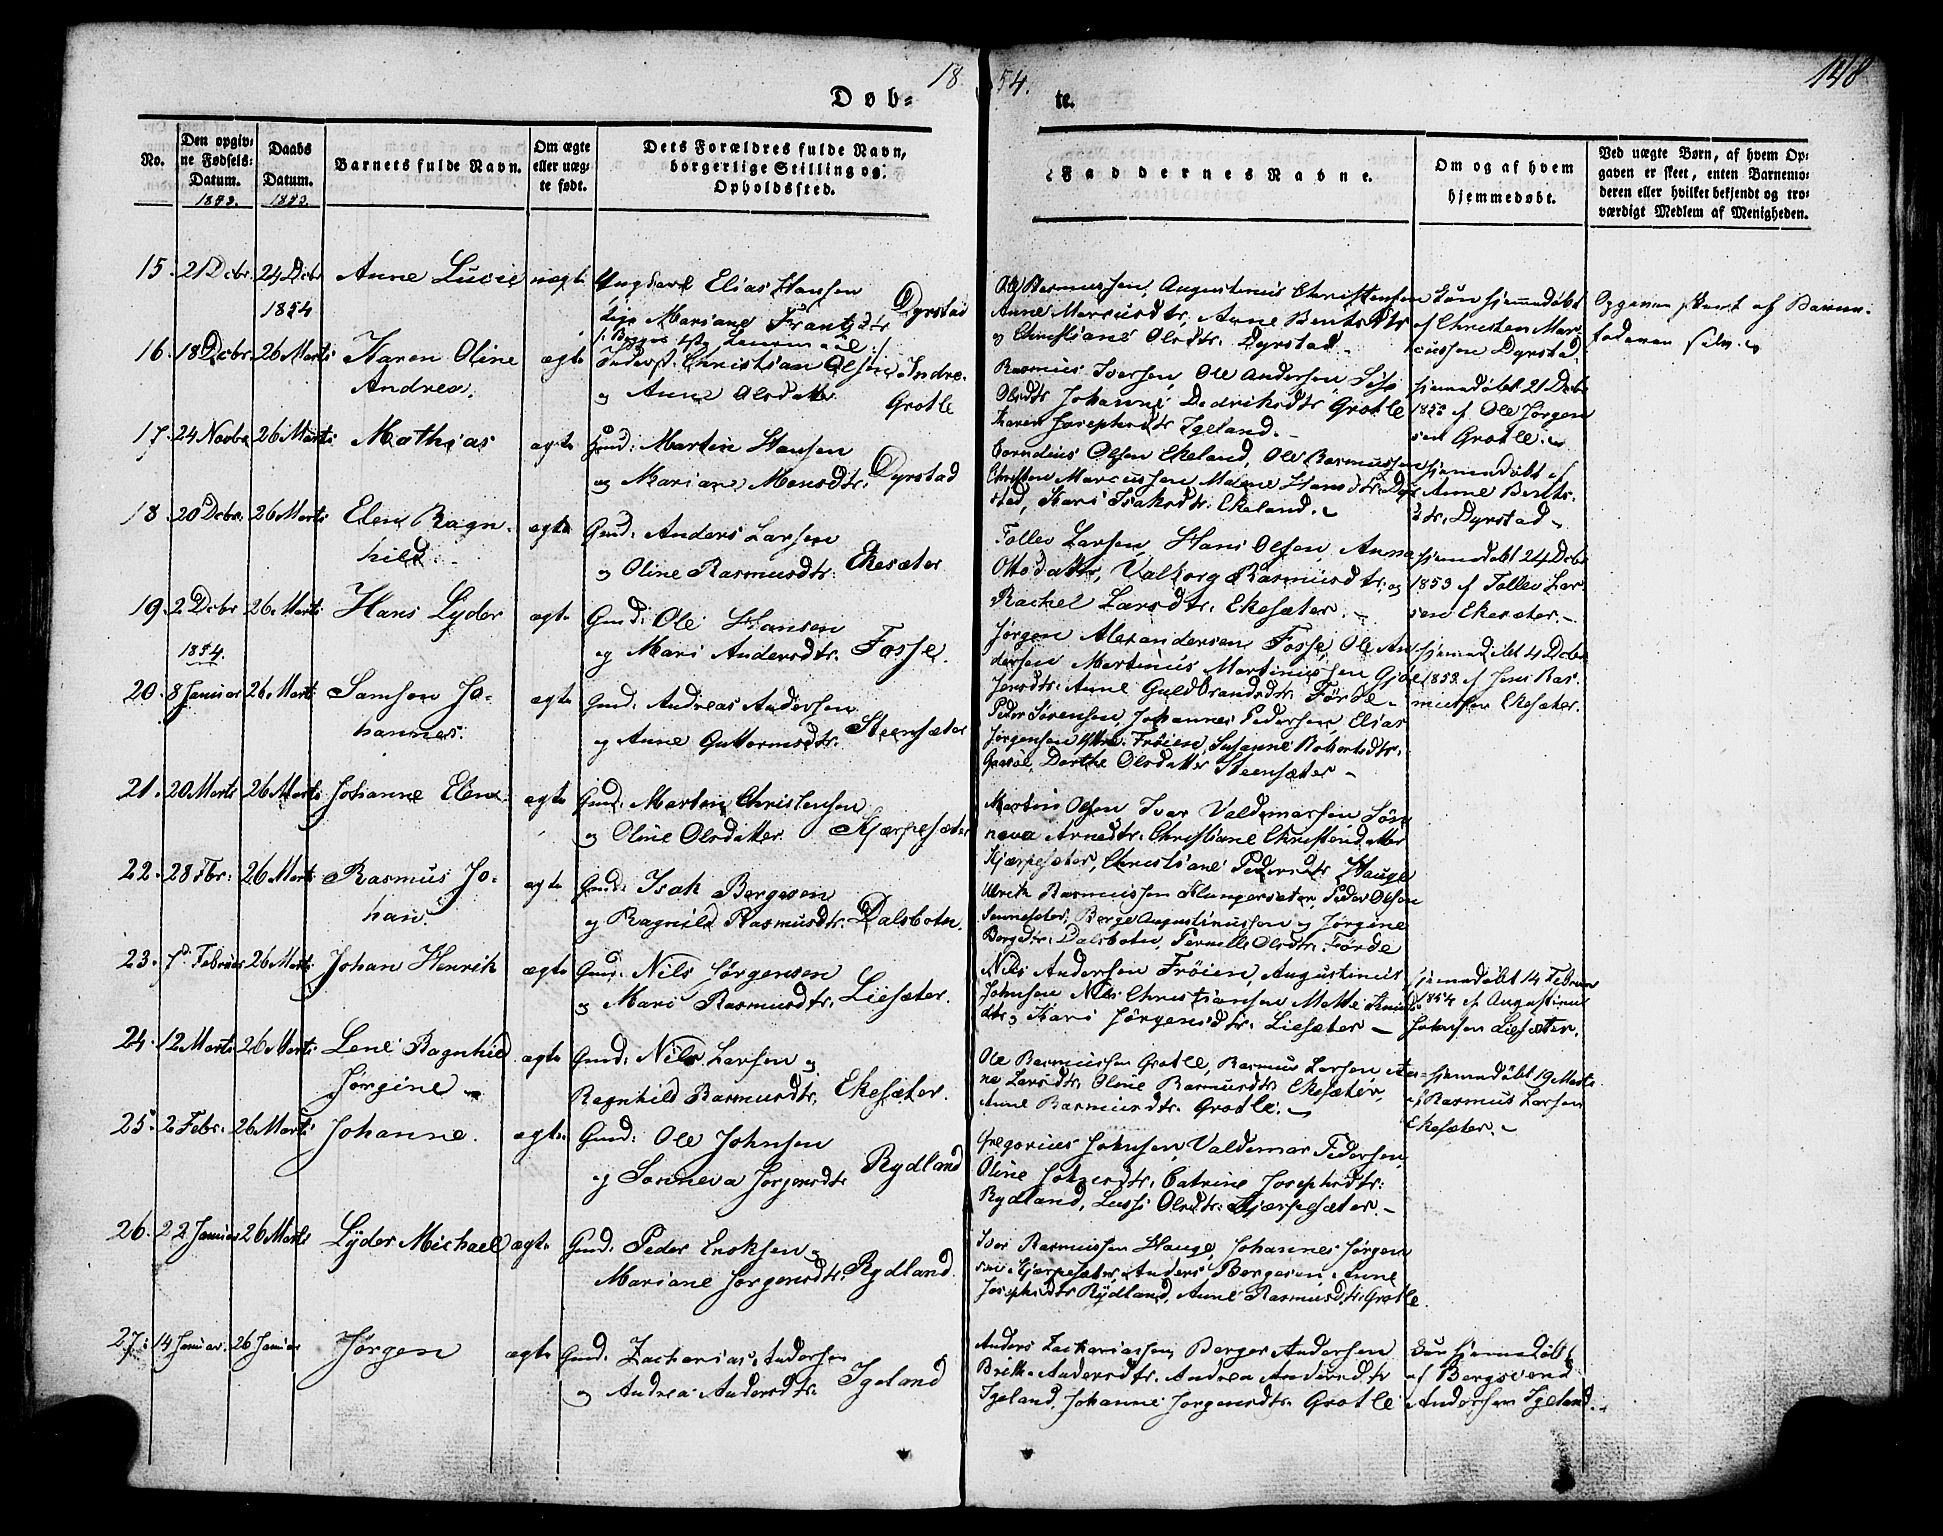 18 54. 148
Døb- te.
No. Den opgiv-
ne Fødsels-
Datum. 1853.
Daabs
Datum. 1853.
Barnets fulde Navn.
Om ægte
eller uæg-
te født.
Dets Forældres fulde Navn,
borgerlige Stilling og
Opholdssted.
Faddernes Navne.
Om og af hvem
hjemmedøbt.
Ved uægte Børn, af hvem Op-
gaven er skeet, enten Barnemo-
deren eller hvilket bekjendt og tro-
værdigt Medlem af Menigheden.
15. 21 Dcbr. 24 Dcbr Anne Lucie uægte Ungkarl Elias Hansen
1854 Pige Mariane Frantzdtr Dyrstad
Ole Rasmussen, Augustinus Christensen
Anne Marcusdtr, Anne Bentsdtr
og Christiane Olsdtr. Dyrstad
hjemmedøbt
af Christen Mar-
cussen Dyrstad.
af Barne-
faderen selv.
16. 18 Dcbr. 26 Marts Karen Oline ægte Christian Olsen Indre-
Andrea. og Anne Olsdatter Grotle
Rasmus Iversen, Ole Andersen,
Olsdtr Johanne Dedriksdtr Grotle
Karen Josephsdtr Igeland.
hjemmedøbt 21 Dcbr
1853 af Ole Jørgen
sen Grotle.
17. 24 Novbr 26 Marts Mathias ægte Gmd: Martin Hansen
og Mariane Monsdtr. Dyrstad
Cornelius Olsen Ekeland, Ole Rasmussen
Christen Marcussen Malene Hansdtr. Dyr
stad, Kari Isaksdtr. Ekeland.
hjemmedøbt af
Anne Bents-
dtr. Dyrstad
18. 20 Dcbr. 26 Marts Elen Ragn- ægte Gmd: Anders Larsen
hild. og Oline Rasmusdtr. Ekesæter
Tollev Larsen, Hans Olsen, Anna
Ottosdatter, Valborg Rasmusdtr. og
Rachel Larsdtr. Ekesæter.
hjemmedøbt 24 Dcbr
1853 af Tollev Lar-
sen Ekesæter.
19. 2 Dcbr 26 Marts Hans Lyder ægte Gmd: Ole Hansen
og Mari Andersdtr. Fosse.
Jørgen Alexandersen Fosse, Ole An-
dersen Martinus Martinussen
Jensdtr. Anne Guldbrandsdtr. Førde.
hjemmedøbt 4 Dcbr
1853 af Jens Ras-
mussen Ekesæter.
1854.
20. 8 Januar 26 Marts Samson Jo- ægte Gmd: Andreas Andersen
hannes. og Anne Guttormsdtr. Steensæter
Peder Sørensen, Johannes Pedersen Elias
Jørgensen Frøien, Susanne Robertsdtr.
Dorthe Olsdatter Steensæter
21. 20 Marts 26 Marts Johanne Elene ægte Gmd: Marten Christensen
og Oline Olsdatter Kjærpesæter
Martin Olsen Ivar Valdemarsen Søn
neva Arnedtr. Christiane Christensdatter
Kjærpesæter, Christiane Pedersdtr. Hauge
22. 28 Fbr: 26 Marts Rasmus Jo- ægte Gmd: Isak Bergesen
han. og Ragnild Rasmusdtr. Dalsboten.
Ulrik Rasmussen Klungersæter, Peder Olsen
Sennesæter, Berge Augustinussen og Jørgine
Bergdtr. Dalsboten, Pernille Olsdtr. Førde
23. Februar 26 Marts Johan Henrik ægte Gmd: Nils Jørgensen
og Mari Rasmusdtr. Liesæter.
Nils Andersen Frøien, Augustinus
Johnsen Nils Christiansen Mette Knuds-
dtr. Kari Jørgensdtr. Liesæter
hjemmedøbt 14 Februar
1854 af Augustinus
Johnsen Liesæter.
24. 12 Marts 26 Marts Lene Ragnhild ægte Gmd: Nils Larsen og
Jørgine Ragnhild Rasmusdtr. Ekesæter.
Ole Rasmussen Grotle, Rasmus Larsen, An-
ne Larsdtr. Oline Rasmusdtr. Ekesæter,
Anne Rasmusdtr. Grotle.
hjemmedøbt 19 Marts
af Rasmus Larsen
Ekesæter.
25. 2 Febr. 26 Marts Johanne. ægte. Gmd: Ole Johnsen
og Sønneva Jørgensdtr Rydland
Gregorius Johnsen, Valdemar Pedersen,
Oline Johnsdtr. Catrine Josephsdtr:
Rydland, Lussi Olsdtr. Kjærpesæter.
26. 22 Januar 26 Marts Lyder Michael ægte Gmd: Peder Eriksen og
Mariane Jørgensdtr. Rydland.
Iver Rasmussen Hauge, Johannes Jørgen
sen Kjærpesæter, Anders Bergesen, Anne
Josephsdtr Rydland, Anne Rasmusdtr. Grotle
27. 14 Januar. 26 Januar Jørgen ægte Gmd: Zacharias Andersen
og Andrea Andersdtr. Igeland
Anders Zachariassen, Berger Andersen
Brithe Andersdtr. Andrea Andersdtr
Igeland, Johanne Jørgensdtr. Grotle
hjemmedøbt
af Bergsvend
Andersen Igeland.